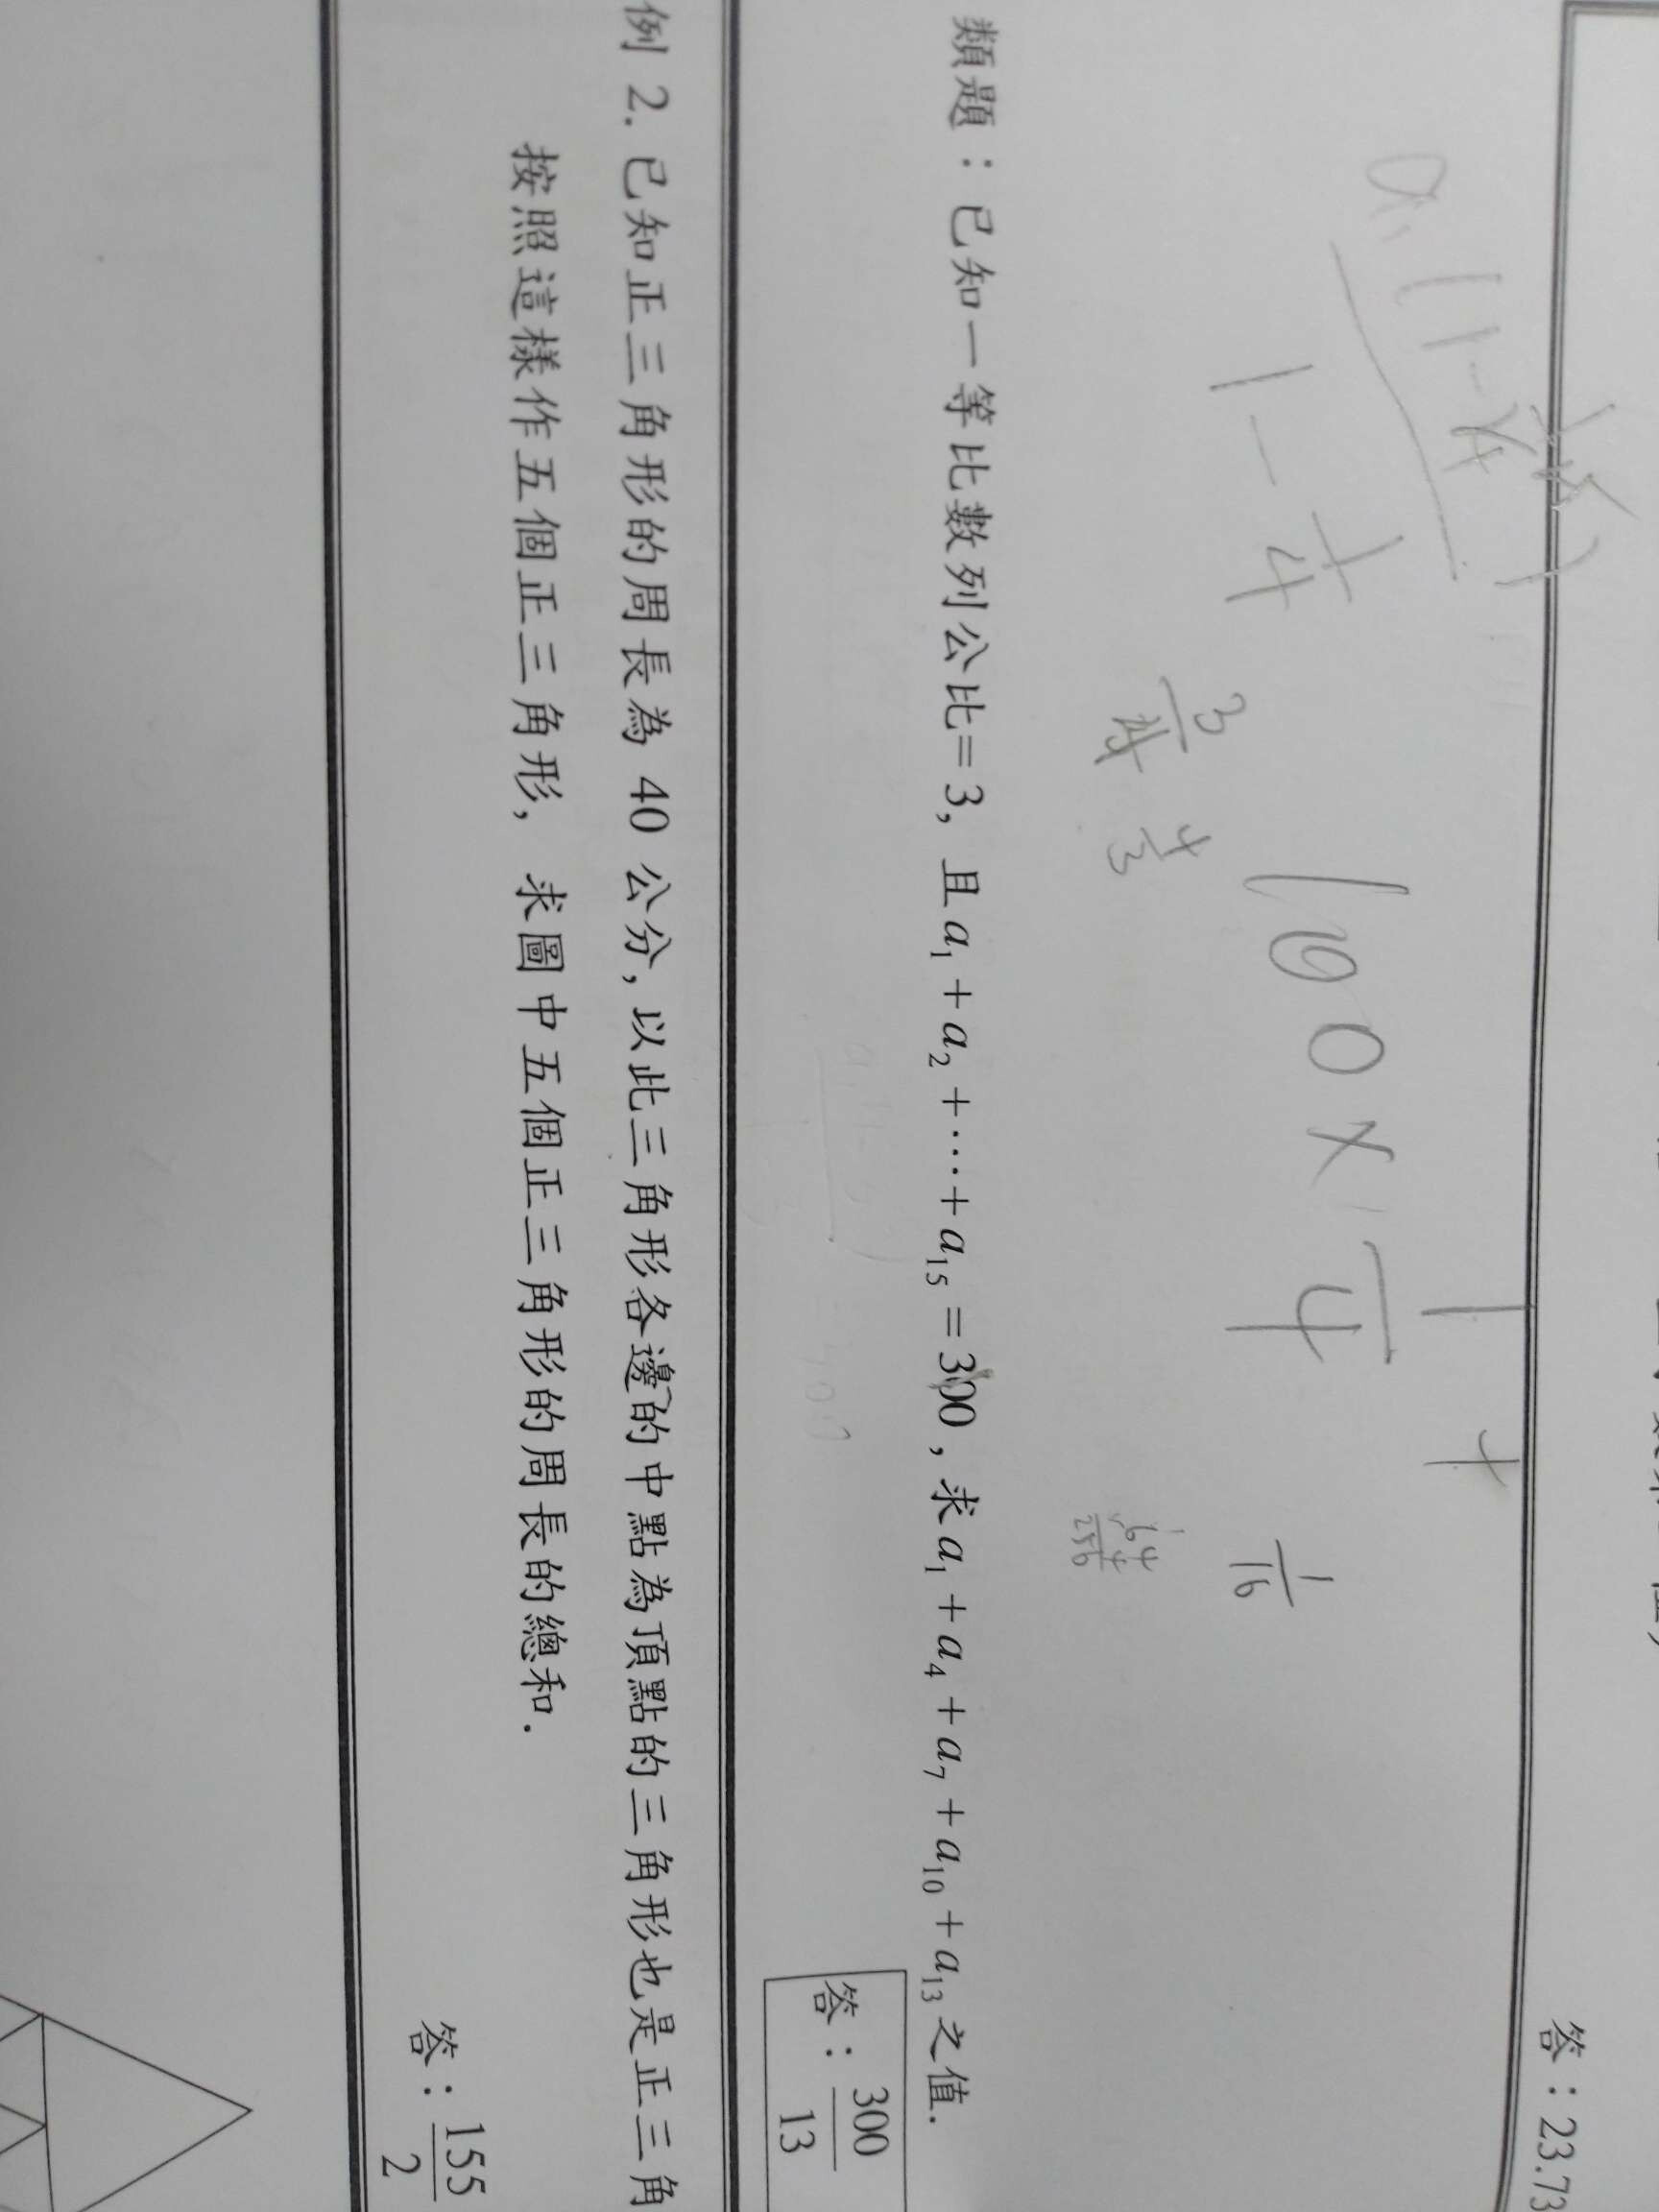 答：23.73
a₁(1-(1/4)⁵)
1-1/4
3/4
4/3
100×1/4
1+
1/16
64
4
256
類題：已知一等比數列公比=3，且a₁+a₂+⋯+a₁₅=300，求a₁+a₄+a₇+a₁₀+a₁₃之值．
答：300/13
例 2. 已知正三角形的周長為 40 公分，以此三角形各邊的中點為頂點的三角形也是正三角
按照這樣作五個正三角形，求圖中五個正三角形的周長的總和．
答：155/2